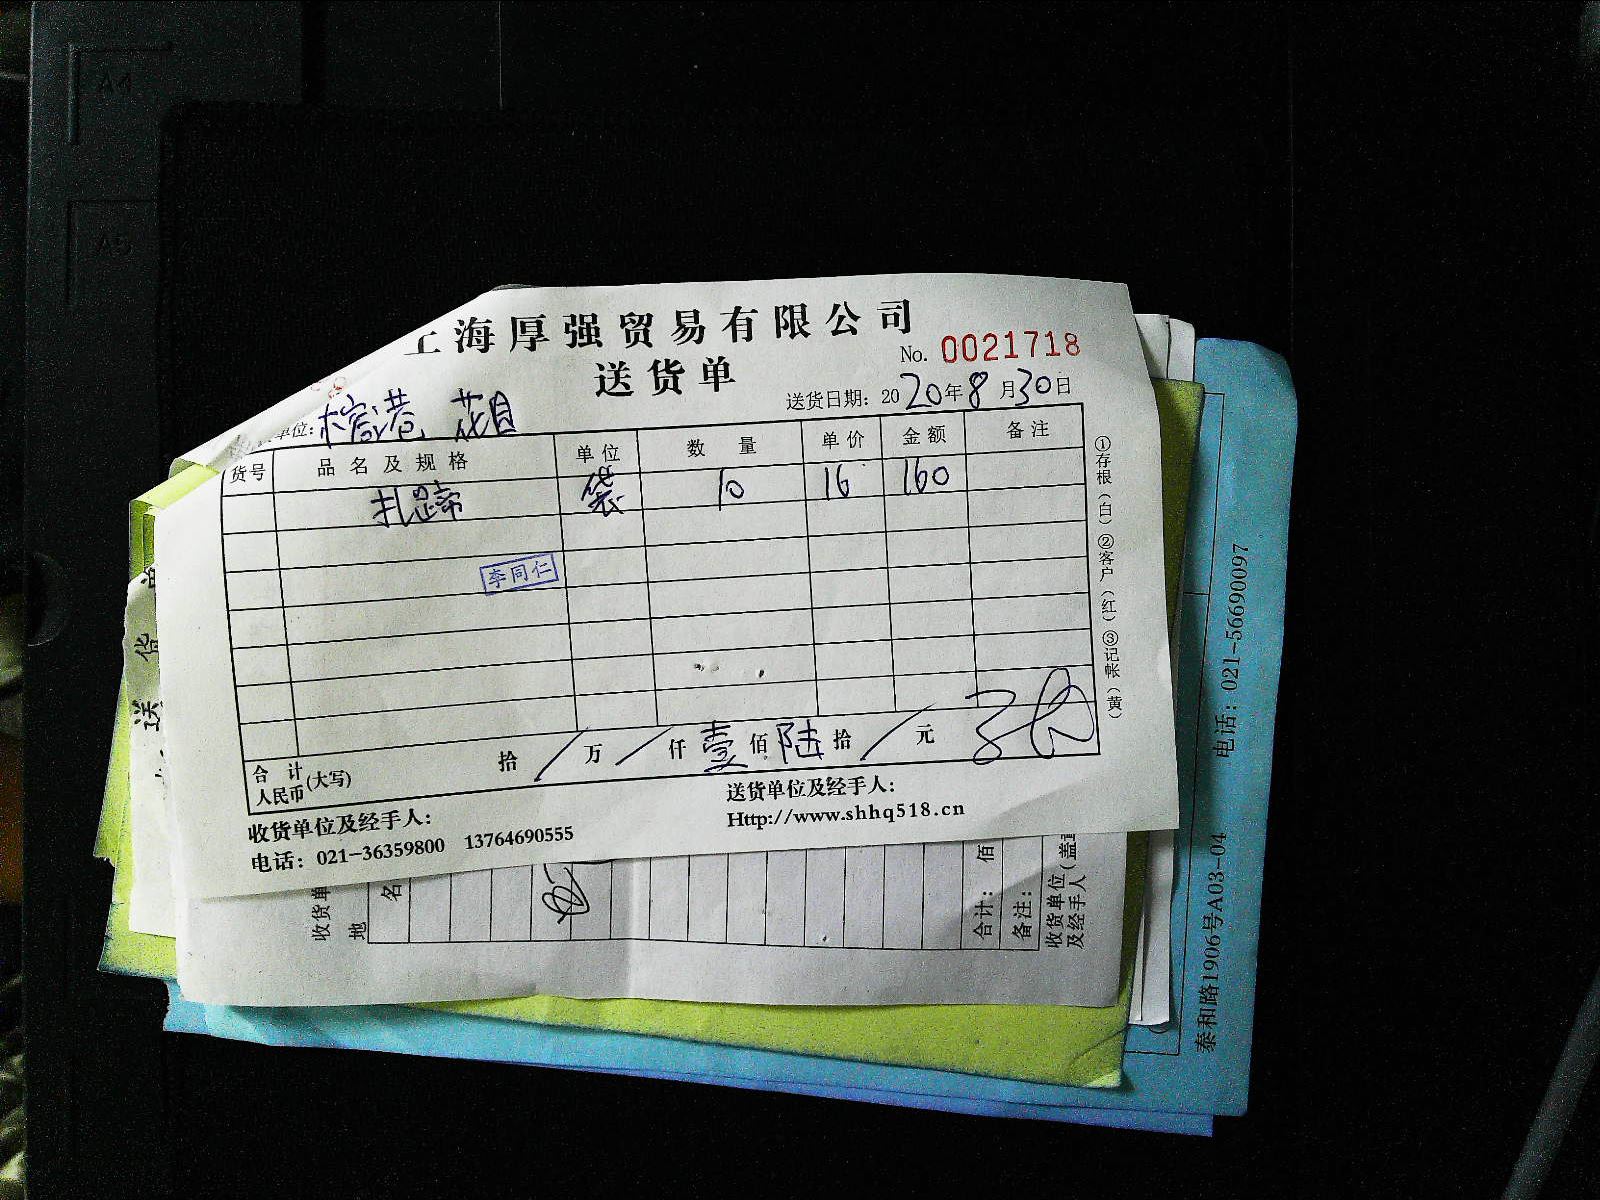 A4
A5
上海厚强贸易有限公司
送货单
No. 0021718
单位:
送货日期: 2020年8月30日
货号 品名及规格 单位 数量 单价 金额 备注
扎蹄 袋 10 16 160
李同仁
合计 人民币 (大写) 拾 / 万 / 仟 壹 佰 陆 拾 / 元
收货单位及经手人:
送货单位及经手人:
电话: 021-36359800 13764690555
Http://www.shhq518.cn
①存根(白) ②客户(红) ③记帐(黄)
送
收货单
地
名
合计: 佰
备注:
收货单位(盖
及经手人
泰和路1906号A03-04 电话: 021-56690097